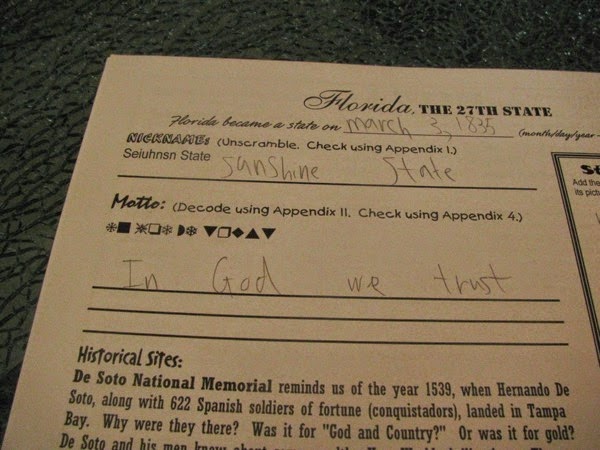 Florida, THE 27TH STATE
Florida became a state on march 3, 1835 (month/day/year -
NICKNAME: (Unscramble. Check using Appendix I.)
Seiuhnsn State sunshine State
Add the
its pict
Motto: (Decode using Appendix II. Check using Appendix 4.)
In God we trust
Historical Sites:
De Soto National Memorial reminds us of the year 1539, when Hernando De
Soto, along with 622 Spanish soldiers of fortune (conquistadors), landed in Tampa
Bay. Why were they there? Was it for "God and Country?" Or was it for gold?
De Soto and his men